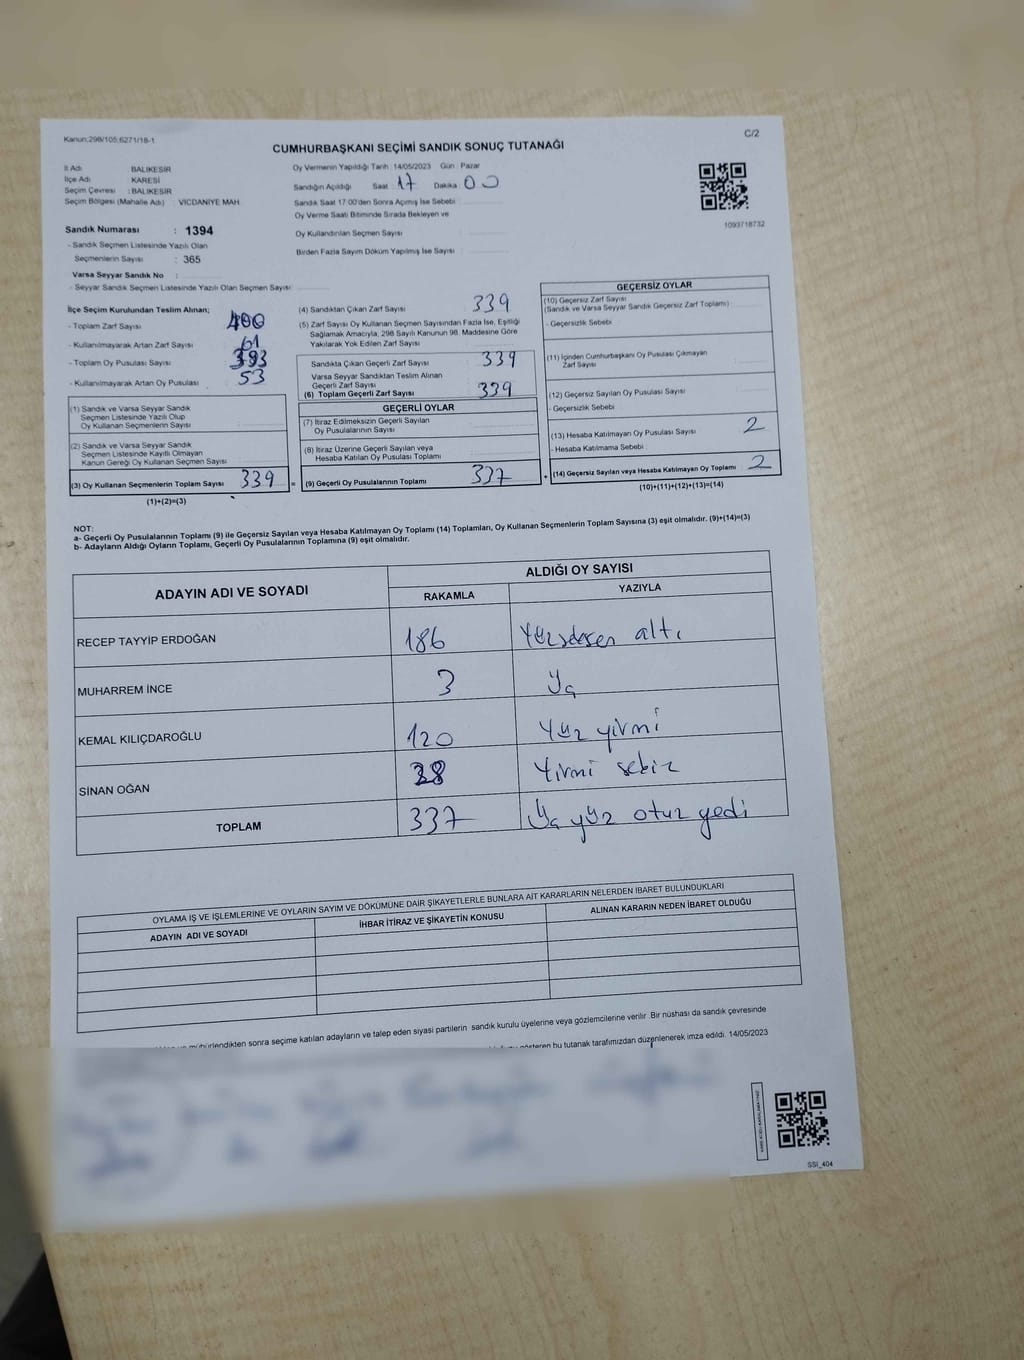 Kanun:298/105,6271/18-1
C/2
CUMHURBAŞKANI SEÇİMİ SANDIK SONUÇ TUTANAĞI
İl Adı BALIKESİR
İlçe Adı KARESİ
Seçim Çevresi : BALIKESİR
Seçim Bölgesi (Mahalle Adı) : VİCDANİYE MAH.
Sandık Numarası : 1394
- Sandık Seçmen Listesinde Yazılı Olan
Seçmenlerin Sayısı : 365
Varsa Seyyar Sandık No :
- Seyyar Sandık Seçmen Listesinde Yazılı Olan Seçmen Sayısı:
Oy Vermenin Yapıldığı Tarih : 14/05/2023 Gün : Pazar
Sandığın Açıldığı Saat : 17 Dakika : 00
Sandık Saat 17:00'den Sonra Açımış İse Sebebi :
Oy Verme Saati Bitiminde Sırada Bekleyen ve
Oy Kullandırılan Seçmen Sayısı :
Birden Fazla Sayım Döküm Yapılmış İse Sayısı :
1093718732
İlçe Seçim Kurulundan Teslim Alınan;
- Toplam Zarf Sayısı : 400
- Kullanılmayarak Artan Zarf Sayısı : 61
- Toplam Oy Pusulası Sayısı : 393
- Kullanılmayarak Artan Oy Pusulası : 53
(1) Sandık ve Varsa Seyyar Sandık
Seçmen Listesinde Yazılı Olup
Oy Kullanan Seçmenlerin Sayısı
(2) Sandık ve Varsa Seyyar Sandık
Seçmen Listesinde Kayıtlı Olmayan
Kanun Gereği Oy Kullanan Seçmen Sayısı
(3) Oy Kullanan Seçmenlerin Toplam Sayısı : 339
(1)+(2)=(3)
(4) Sandıktan Çıkan Zarf Sayısı : 339
(5) Zarf Sayısı Oy Kullanan Seçmen Sayısından Fazla İse, Eşitliği
Sağlamak Amacıyla, 298 Sayılı Kanunun 98. Maddesine Göre
Yakılarak Yok Edilen Zarf Sayısı :
Sandıkta Çıkan Geçerli Zarf Sayısı : 339
Varsa Seyyar Sandıktan Teslim Alınan
Geçerli Zarf Sayısı
(6) Toplam Geçerli Zarf Sayısı : 339
GEÇERLİ OYLAR
(7) İtiraz Edilmeksizin Geçerli Sayılan
Oy Pusulalarının Sayısı
(8) İtiraz Üzerine Geçerli Sayılan veya
Hesaba Katılan Oy Pusulası Toplamı
= (9) Geçerli Oy Pusulalarının Toplamı : 337
GEÇERSİZ OYLAR
(10) Geçersiz Zarf Sayısı
(Sandık ve Varsa Seyyar Sandık Geçersiz Zarf Toplamı) :
- Geçersizlik Sebebi :
(11) İçinden Cumhurbaşkanı Oy Pusulası Çıkmayan
Zarf Sayısı
(12) Geçersiz Sayılan Oy Pusulası Sayısı
- Geçersizlik Sebebi :
(13) Hesaba Katılmayan Oy Pusulası Sayısı : 2
- Hesaba Katılmama Sebebi :
+ (14) Geçersiz Sayılan veya Hesaba Katılmayan Oy Toplamı : 2
(10)+(11)+(12)+(13)=(14)
NOT:
a- Geçerli Oy Pusulalarının Toplamı (9) ile Geçersiz Sayılan veya Hesaba Katılmayan Oy Toplamı (14) Toplamları, Oy Kullanan Seçmenlerin Toplam Sayısına (3) eşit olmalıdır. (9)+(14)=(3)
b- Adayların Aldığı Oyların Toplamı, Geçerli Oy Pusulalarının Toplamına (9) eşit olmalıdır.
ADAYIN ADI VE SOYADI
ALDIĞI OY SAYISI
RAKAMLA YAZIYLA
RECEP TAYYİP ERDOĞAN 186 Yüzseksen altı
MUHARREM İNCE 3 Üç
KEMAL KILIÇDAROĞLU 120 Yüz yirmi
SİNAN OĞAN 28 Yirmi sekiz
TOPLAM 337 Üç yüz otuz yedi
OYLAMA İŞ VE İŞLEMLERİNE VE OYLARIN SAYIM VE DÖKÜMÜNE DAİR ŞİKAYETLERLE BUNLARA AİT KARARLARIN NELERDEN İBARET BULUNDUKLARI
ADAYIN ADI VE SOYADI İHBAR İTİRAZ VE ŞİKAYETİN KONUSU ALINAN KARARIN NEDEN İBARET OLDUĞU
mühürlendikten sonra seçime katılan adayların ve talep eden siyasi partilerin sandık kurulu üyelerine veya gözlemcilerine verilir. Bir nüshası da sandık çevresinde
gösteren bu tutanak tarafımızdan düzenlenerek imza edildi. 14/05/2023
SSI_404